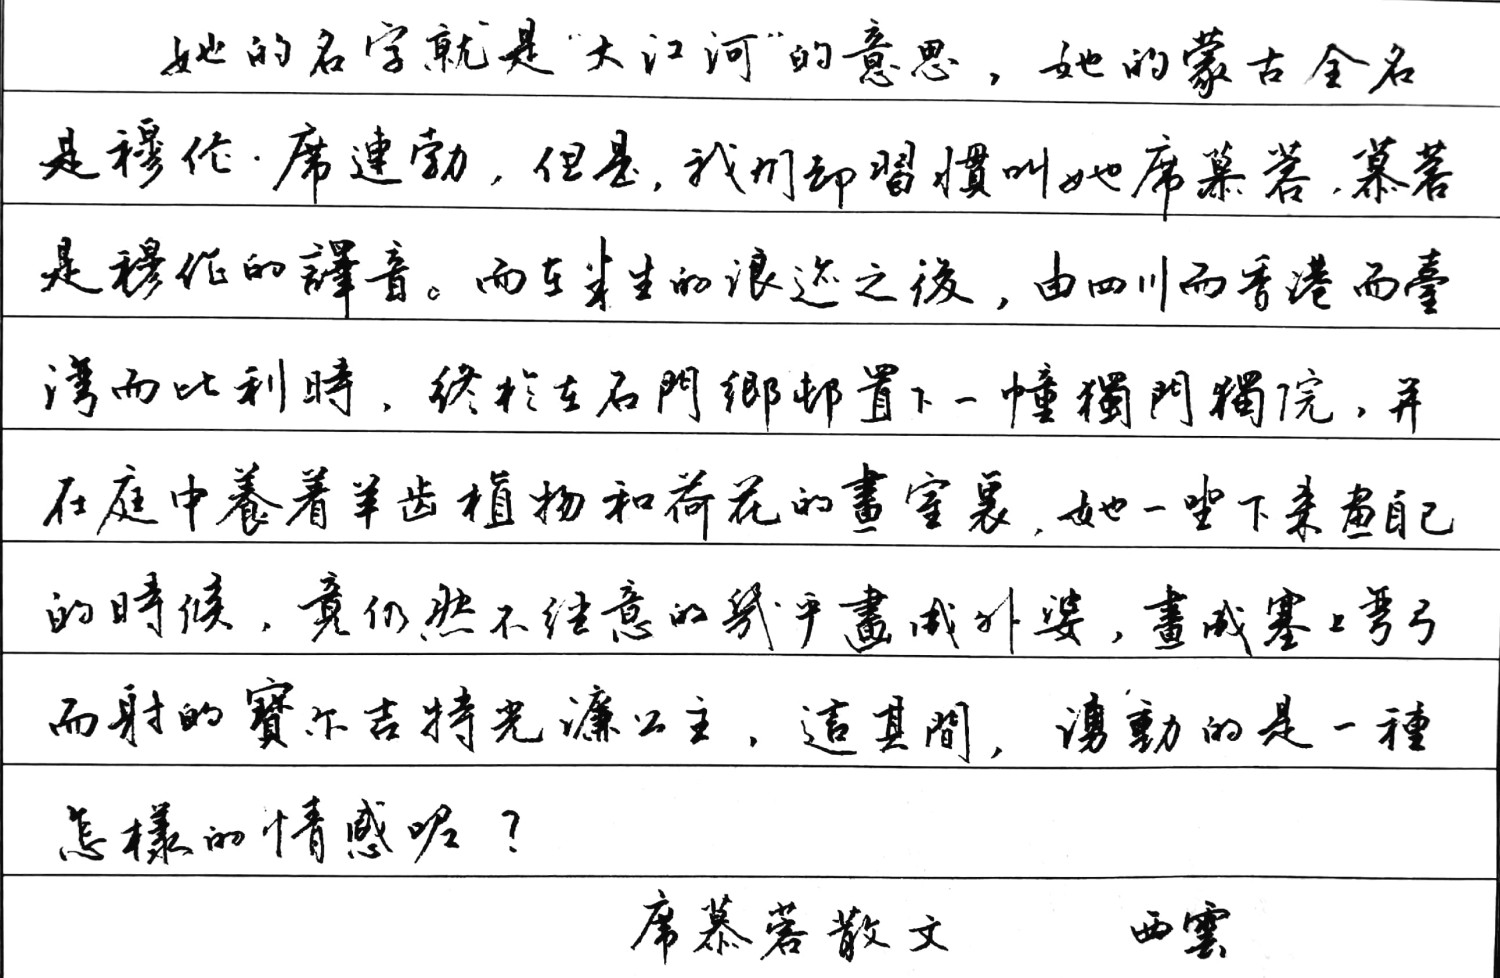 她的名字就是“大江河”的意思，她的蒙古全名
是穆伦·席連勃，但是，我们却習慣叫她席慕蓉，慕蓉
是穆伦的譯音。而在半生的浪迹之後，由四川而香港而臺
灣而比利時，终於在石門鄉邨置下一幢獨門獨院，并
在庭中養着羊齿植物和荷花的畫室裏，她一坐下来畫自己
的時候，竟仍然不经意的幾乎畫成外婆，畫成塞上弯弓
而射的寳尔吉特光濂公主，這其間，湧動的是一種
怎樣的情感呢？
席慕蓉散文 西雲